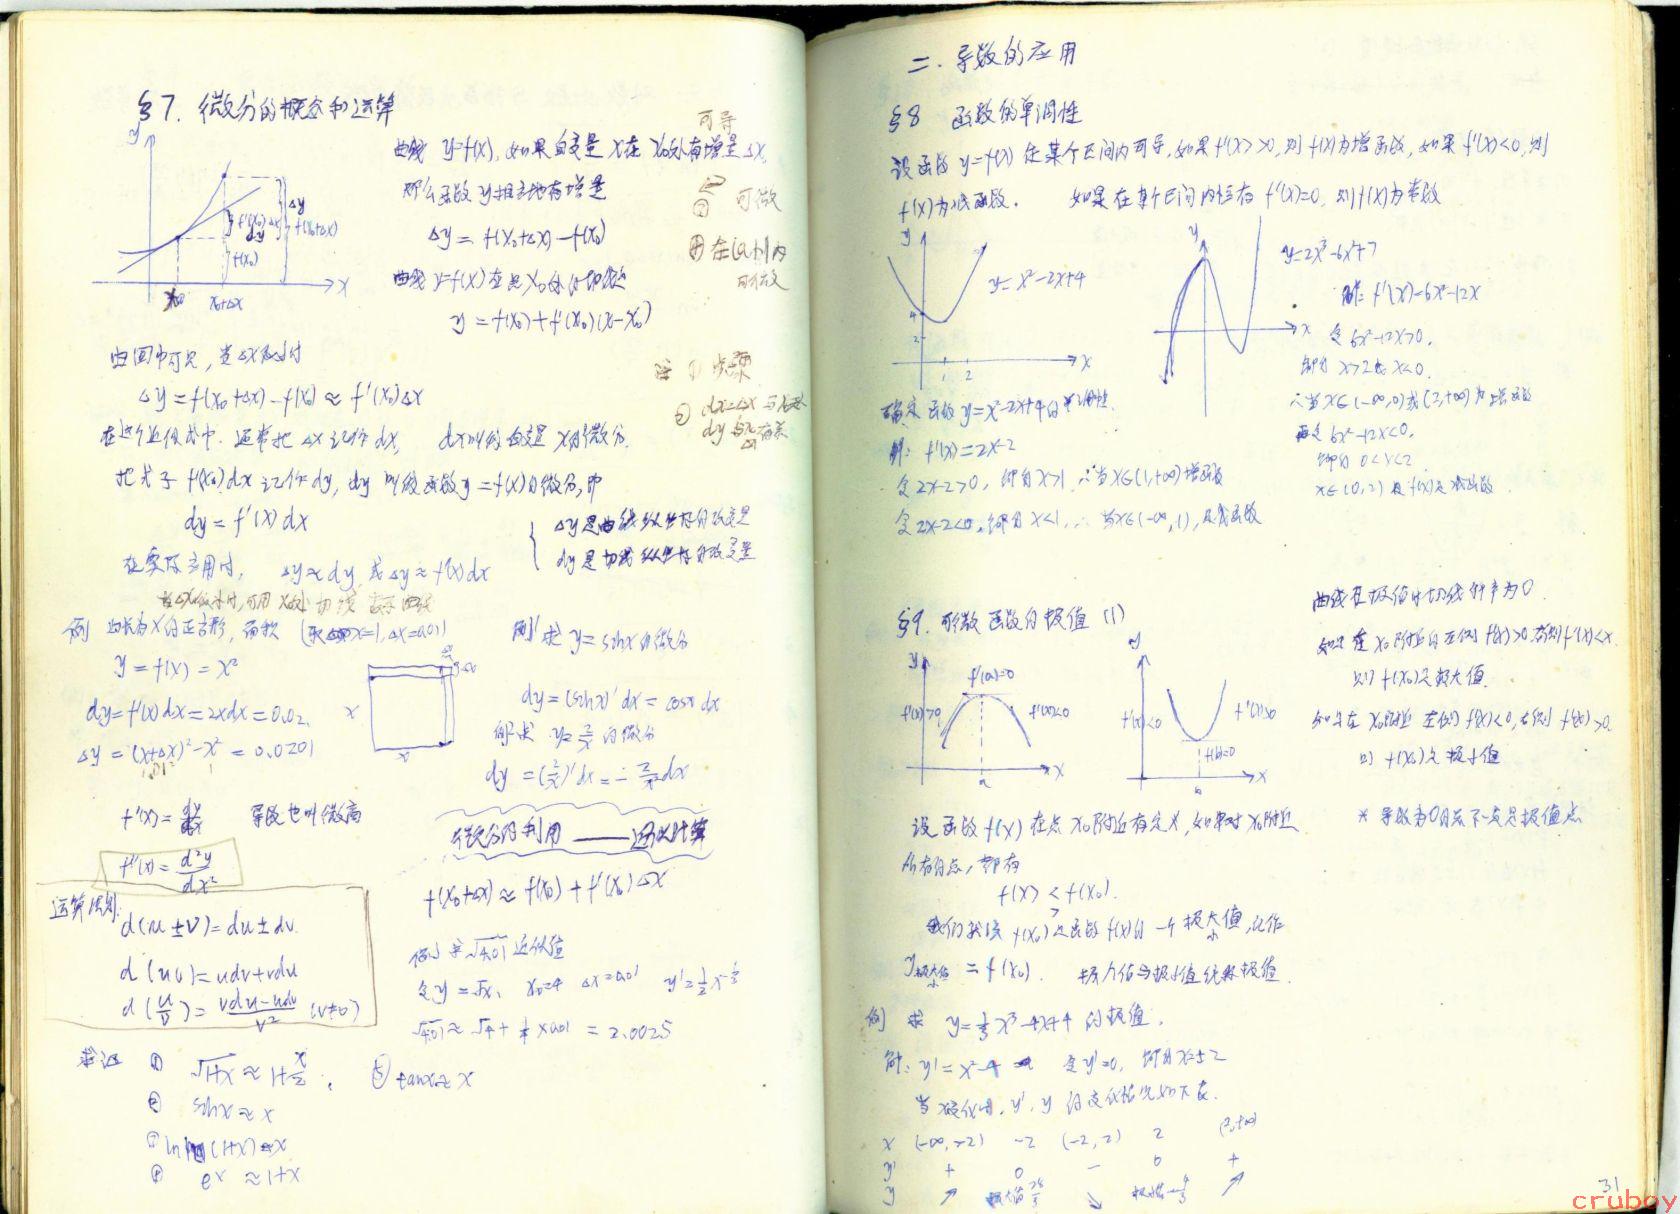 §7. 微分的概念和运算
y
Δy
f'(x₀)Δx
dy
f(x₀+Δx)
f(x₀)
x₀
x₀+Δx
x
曲线 y=f(x), 如果自变量 x 在 x₀处有增量 Δx,
那么函数 y 相应地有增量
Δy = f(x₀+Δx)-f(x₀)
曲线 y=f(x) 在点 x₀处的切线
y = f(x₀)+f'(x₀)(x-x₀)
可导
可微
在(a,b)内
可微
由图中可见, 当Δx很小时
Δy = f(x₀+Δx)-f(x₀) ≈ f'(x₀)Δx
在这个近似式中, 通常把 Δx 记作 dx, dx叫做自变量 x的微分.
把式子 f'(x₀)dx 记作 dy, dy 叫做函数 y=f(x)的微分, 即
dy = f'(x)dx
注 ① 步骤
② dx=Δx
Δy是曲线纵坐标的改变量
dy是切线纵坐标的改变量
在实际应用时, Δy≈dy, 或 Δy≈f'(x)dx
当Δx很小时, 可用 x₀处切线 曲线
例 边长为x的正方形, 面积 (x=1, Δx=0.01)
y = f(x) = x²
dy=f'(x)dx=2xdx=0.02.
Δy = (x+Δx)²-x² = 0.0201
1.01² 1
x
x
Δx
例 求 y=sinx的微分
dy=(sinx)'dx=cosx dx
例 求 y=2/x 的微分
dy =(2/x)'dx=-2/x²dx
f'(x)=dy/dx 导数也叫微商
f''(x)=d²y/dx²
运算法则:
d(u±v)=du±dv
d(uv)=udv+vdu
d(u/v)=(vdu-udv)/v² (v≠0)
微分的利用——近似计算
f(x₀+Δx)≈f(x₀)+f'(x₀)Δx
例 求√4.01 近似值
令y=√x, x₀=4 Δx=0.01 y'=½x^-½
√4.01≈√4+¼×0.01 =2.0025
求证 ① √1+x ≈1+x/2. ⑤ tanx≈x
② sinx≈x
③ ln(1+x)≈x
④ eˣ≈1+x
二. 导数的应用
§8 函数的单调性
设函数 y=f(x) 在某个区间内可导, 如果 f'(x)>0, 则 f(x)为增函数, 如果 f'(x)<0, 则
f(x)为减函数. 如果在某个区间内恒有 f'(x)=0, 则f(x)为常数
y
y=x²-2x+4
4
2
1 2
x
y
x
y=2x³-6x²+7
解: f'(x)=6x²-12x
令 6x²-12x>0,
解得 x>2或x<0.
∴当 x∈(-∞,0)或(2,+∞)为增函数
再令 6x²-12x<0,
解得 0<x<2
x∈(0,2) 是f(x)是减函数
确定函数 y=x²-2x+4的单调性.
解: f'(x)=2x-2
令 2x-2>0, 解得x>1, ∴当x∈(1,+∞)增函数
令 2x-2<0, 解得 x<1, ∴当x∈(-∞,1), 是减函数
§9. 可微函数的极值 (1)
y
f'(a)=0
f'(x)>0
f'(x)<0
a
x
y
f'(x)<0
f'(x)>0
f'(b)=0
b
x
曲线在极值时切线斜率为0.
如果在 x₀附近的左侧 f'(x)>0, 右侧f'(x)<x.
则 f(x₀)是极大值.
如果在 x₀附近 左侧 f'(x)<0, 右侧 f'(x)>0.
则 f(x₀)是极小值
* 导数为0的点不一定是极值点
设函数 f(x) 在点 x₀附近有定义, 如果对 x₀附近
所有的点, 都有
f(x)<f(x₀).
>
我们就说 f(x₀)是函数 f(x)的一个极大值, 记作
小
y极大值 = f(x₀). 极大值与极小值统称极值.
小
例 求 y=⅓x³-4x+4 的极值.
解: y'=x²-4 令y'=0, 解得x=±2
当x变化时, y', y 的变化情况如下表.
x (-∞,-2) -2 (-2,2) 2 (2,+∞)
y' + 0 - 0 +
y ↗ 极大值28/3 ↘ 极小值-4/3 ↗
31
cruboy